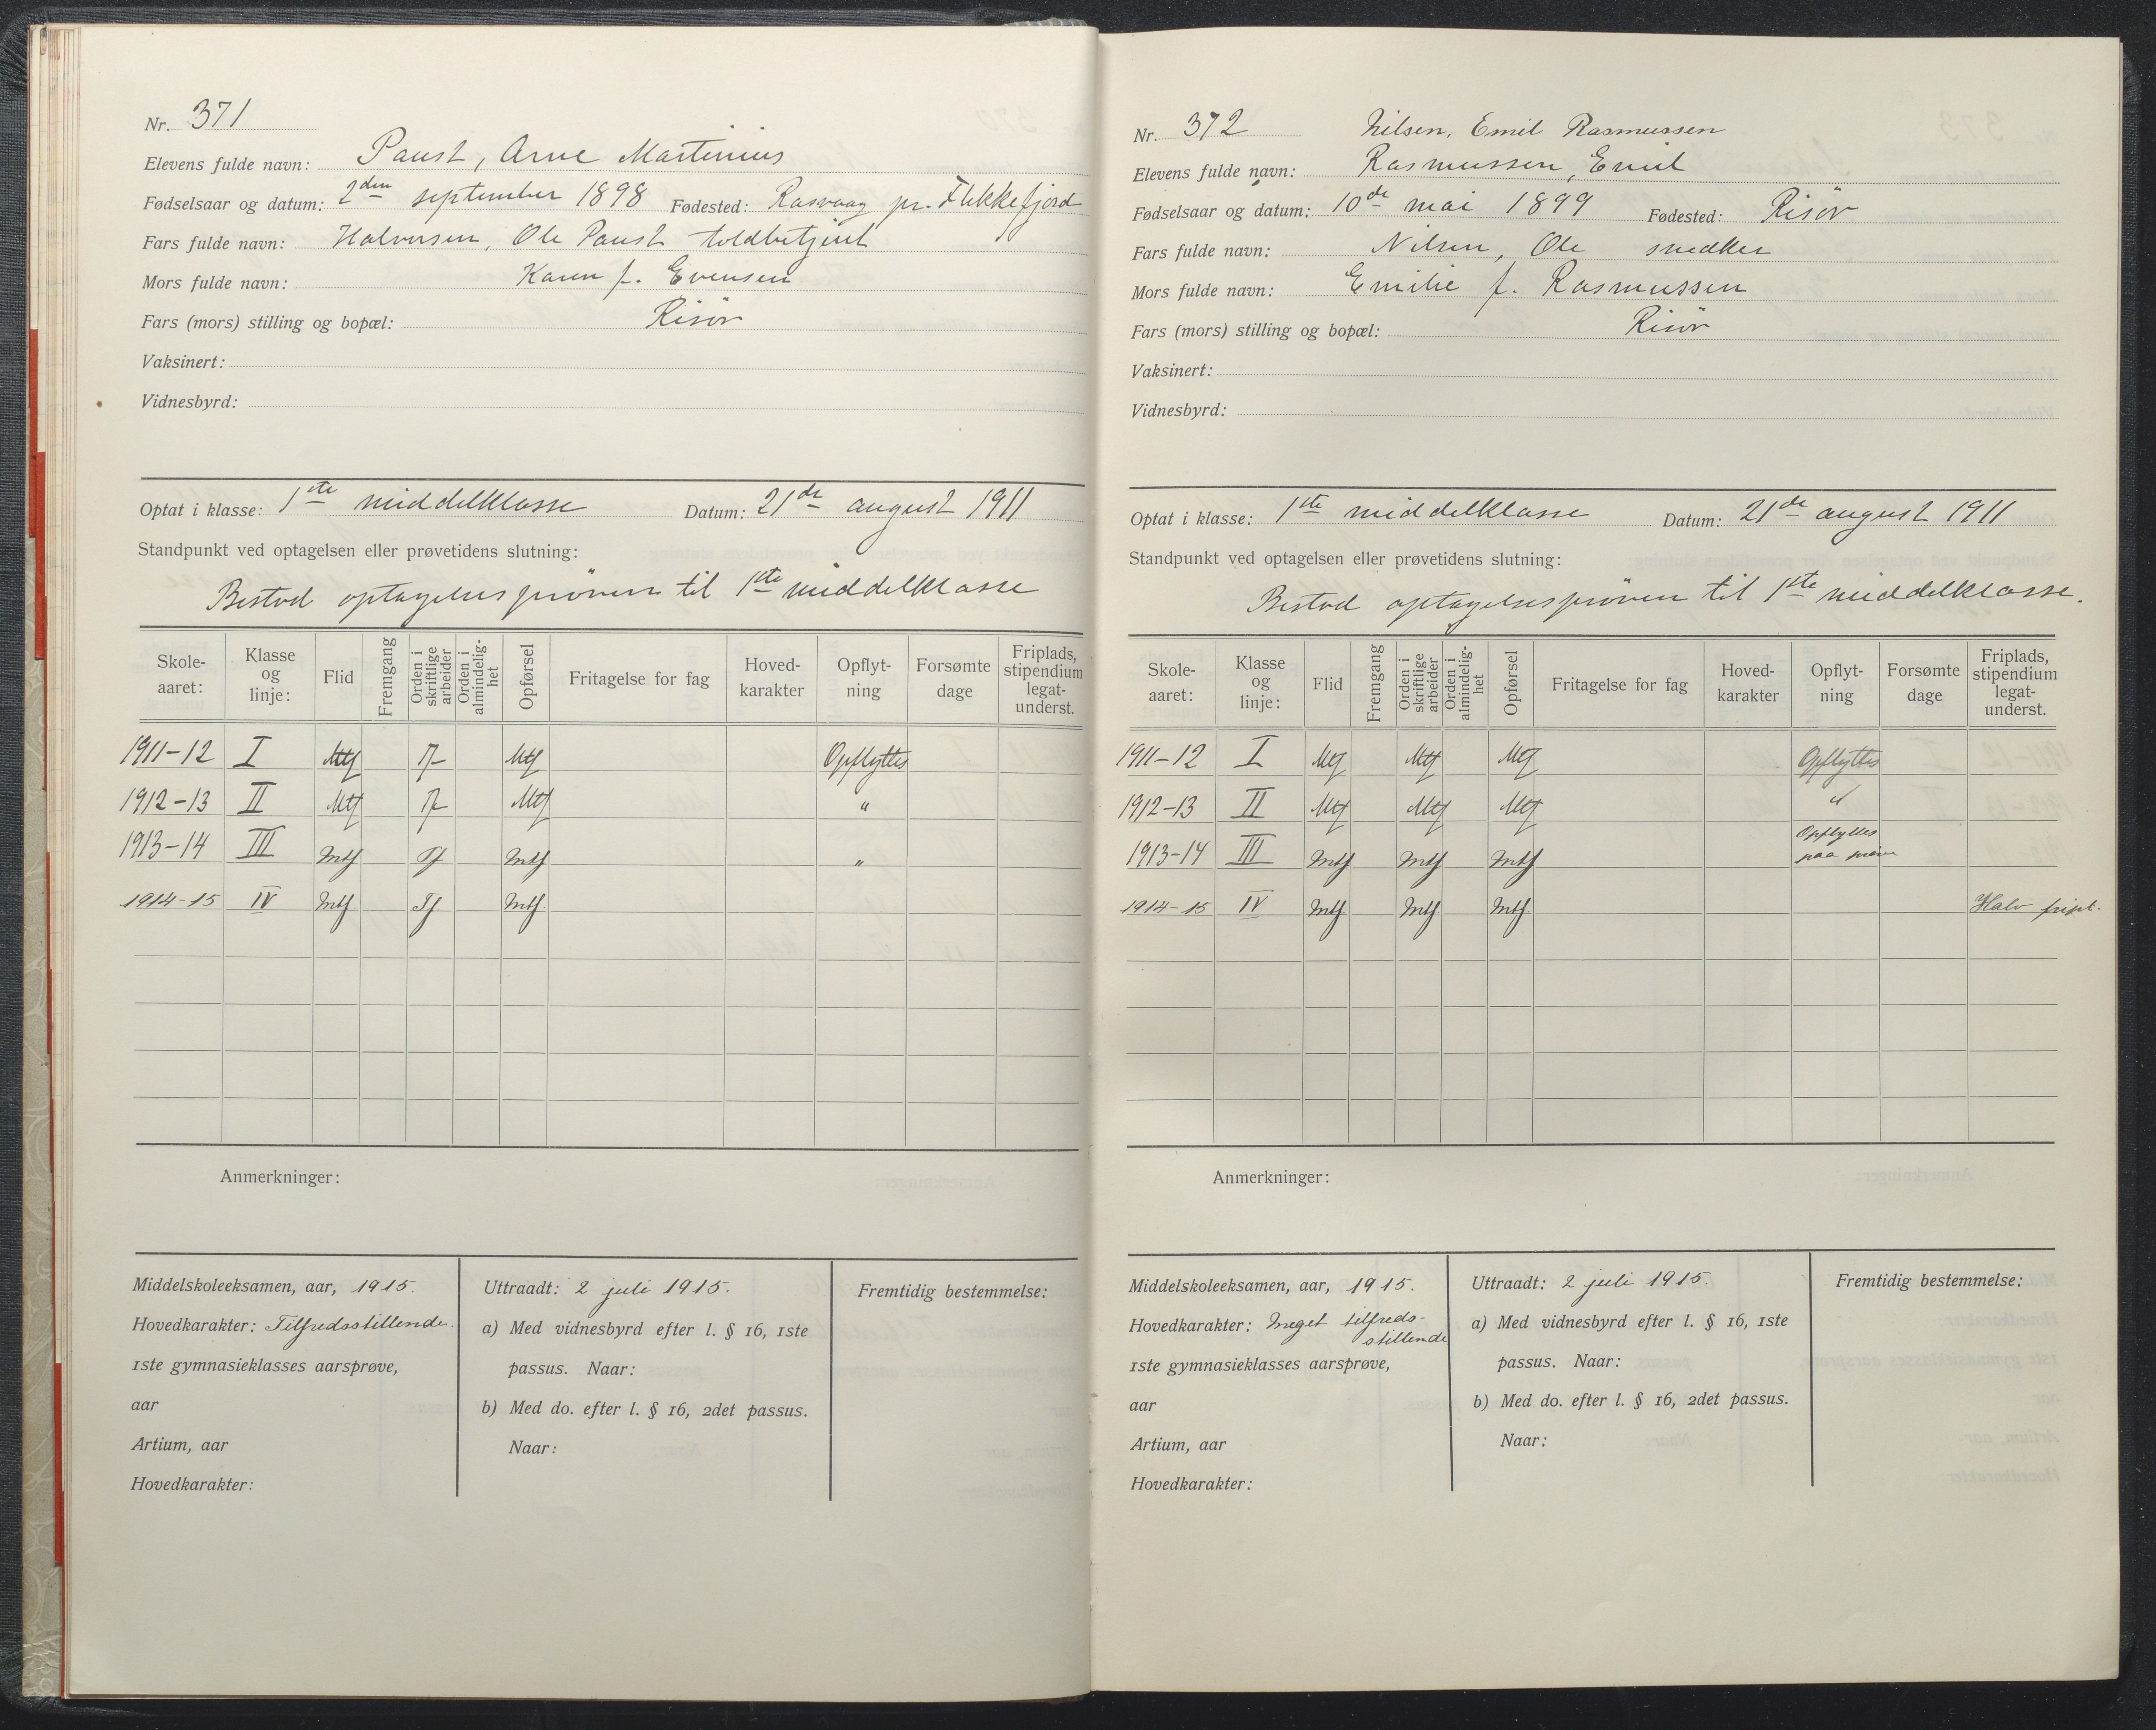 Nr. 371
Elevens fulde navn: Paust, Arne Martinius
Fødselsaar og datum: 2den september 1898 Fødested: Rasvaag pr. Flekkefjord
Fars fulde navn: Halvorsen, Ole Paust toldbetjent
Mors fulde navn: Karen f. Evensen
Fars (mors) stilling og bopæl: Risör
Vaksinert:
Vidnesbyrd:
Optat i klasse: 1ste middelklasse Datum: 21de august 1911
Standpunkt ved optagelsen eller prøvetidens slutning:
Bestod optagelsesprøven til 1ste middelklasse
Skole-aaret: Klasse og linje: Flid Fremgang Orden i skriftlige arbeider Orden i almindelig-het Opførsel Fritagelse for fag Hoved-karakter Opflyt-ning Forsømte dage Friplads, stipendium legat-underst.
1911-12 I Mtf Tf Mtf Opflyttes
1912-13 II Mtf Tf Mtf "
1913-14 III Mtf Tf Mtf "
1914-15 IV Mtf Tf Mtf.
Anmerkninger:
Middelskoleeksamen, aar, 1915.
Hovedkarakter: Tilfredsstillende.
1ste gymnasieklasses aarsprøve,
aar
Artium, aar
Hovedkarakter:
Uttraadt: 2 juli 1915.
a) Med vidnesbyrd efter l. § 16, 1ste
passus. Naar:
b) Med do. efter l. § 16, 2det passus.
Naar:
Fremtidig bestemmelse:
Nr. 372 Nilsen, Emil Rasmussen
Elevens fulde navn: Rasmussen, Emil
Fødselsaar og datum: 10de mai 1899 Fødested: Risör
Fars fulde navn: Nilsen, Ole snedker
Mors fulde navn: Emilie f. Rasmussen
Fars (mors) stilling og bopæl: Risör
Vaksinert:
Vidnesbyrd:
Optat i klasse: 1ste middelklasse Datum: 21de august 1911
Standpunkt ved optagelsen eller prøvetidens slutning:
Bestod optagelsesprøven til 1ste middelklasse.
Skole-aaret: Klasse og linje: Flid Fremgang Orden i skriftlige arbeider Orden i almindelig-het Opførsel Fritagelse for fag Hoved-karakter Opflyt-ning Forsømte dage Friplads, stipendium legat-underst.
1911-12 I Mtf Mtf Mtf Opflyttes
1912-13 II Mtf Mtf Mtf "
1913-14 III Mtf Mtf Mtf Opflyttes paa prøve
1914-15 IV Mtf. Mtf Mtf. Halv fripl.
Anmerkninger:
Middelskoleeksamen, aar, 1915.
Hovedkarakter: Meget tilfreds-
stillende
1ste gymnasieklasses aarsprøve,
aar
Artium, aar
Hovedkarakter:
Uttraadt: 2 juli 1915.
a) Med vidnesbyrd efter l. § 16, 1ste
passus. Naar:
b) Med do. efter l. § 16, 2det passus.
Naar:
Fremtidig bestemmelse: